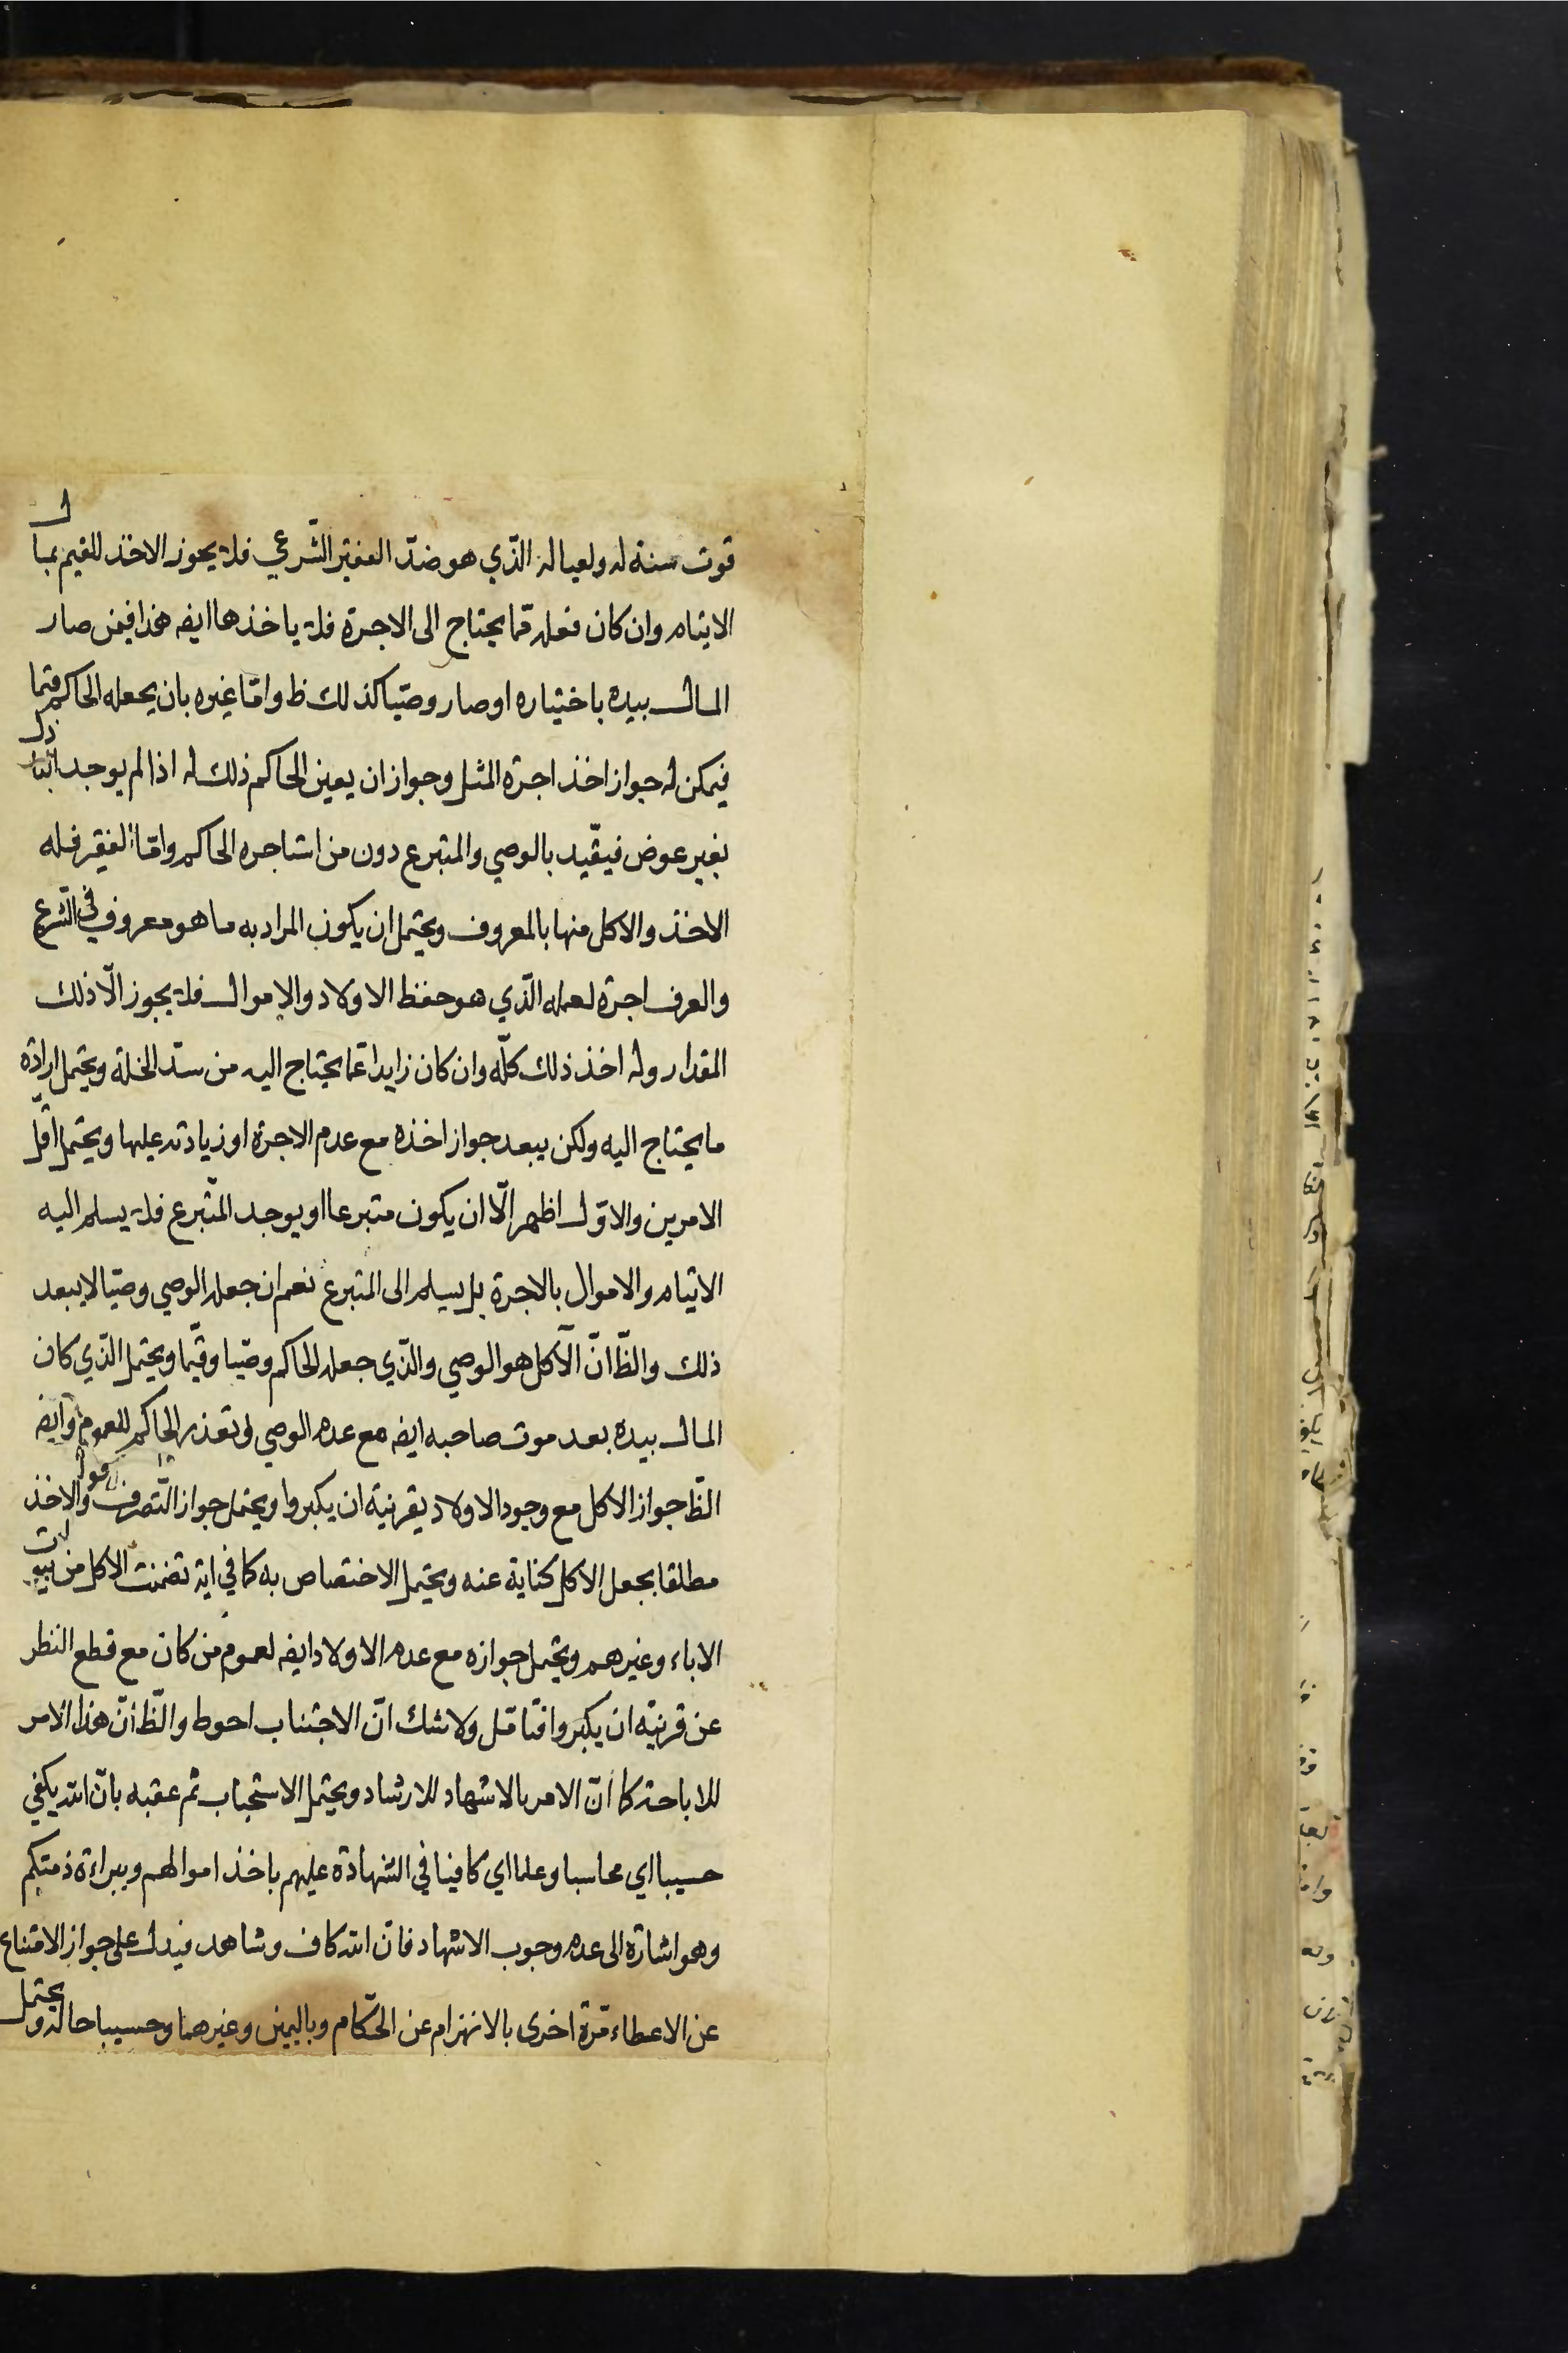 قوت سنة له ولعياله الذي هو ضدّ الفقير الشّرعي فلا يجوز الاخذ للقيم بمال
الايتام وان كان فعله ممّا يحتاج الى الاجرة فلا ياخذها ايض هذا فيمن صار
المال بيده باختياره او صار وصيّا كذلك ظ وامّا غيره بان يجعله الحاكم قيّما
فيمكن له جواز اخذ اجرة المثل وجواز ان يعين الحاكم ذلك له اذا لم يوجد
بغير عوض فيقيّد بالوصي والمتبرع دون من استاجره الحاكم وامّا الفقير فله
الاخذ والاكل منها بالمعروف ويحتمل ان يكون المراد به ما هو معروف في الشّرع
والعرف اجرة لعمله الّذي هو حفظ الاولاد والاموال فلا يجوز الّا ذلك
المقدار وله اخذ ذلك كلّه وان كان زايدا عمّا يحتاج اليه من سدّ الخلة ويحتمل ارادة
ما يحتاج اليه ولكن يبعد جواز اخذه مع عدم الاجرة او زيادته عليها ويحتمل اقلّ
الامرين والاوّل اظهر الّا ان يكون متبرعا او يوجد المتّبرع فلا يسلم اليه
الايتام والاموال بالاجرة بل يسلم الى المتبرع نعم ان جعله الوصي وصيّا لا يبعد
ذلك والظّ انّ الآكل هو الوصي والذّي جعله الحاكم وصيّا وقيّما ويحتمل الذّي كان
المال بيده بعد موت صاحبه ايض مع عدم الوصي او تعذر الحاكم للعموم وايض
الظّ جواز الاكل مع وجود الاولاد بقرنية ان يكبروا ويحتمل جواز التّصرف والاخذ
مطلقا بجعل الاكل كناية عنه ويحتمل الاختصاص به كما في اية تضمنت الاكل من بيوت
الاباء وغيرهم ويحتمل جوازه مع عدم الاولاد ايض لعموم من كان مع قطع النظر
عن قرنية ان يكبروا فتامّل ولا شك انّ الاجتناب احوط والظّ انّ هذا الامر
للاباحة كما انّ الامر بالاشهاد للارشاد ويحتمل الاستحباب ثم عقبه بانّ الله يكفي
حسيبا اي محاسبا وعلما اي كافينا في الشّهادة عليهم باخذ اموالهم وببراءة ذمتكم
وهو اشارة الى عدم وجوب الاشهاد فانّ الله كاف وشاهد فيدل على جواز الامتناع
عن الاعطاء مرّة اخرى بالانهزام عن الحكّام وباليمين وغيرهما وحسيبا حالة ويحتمل